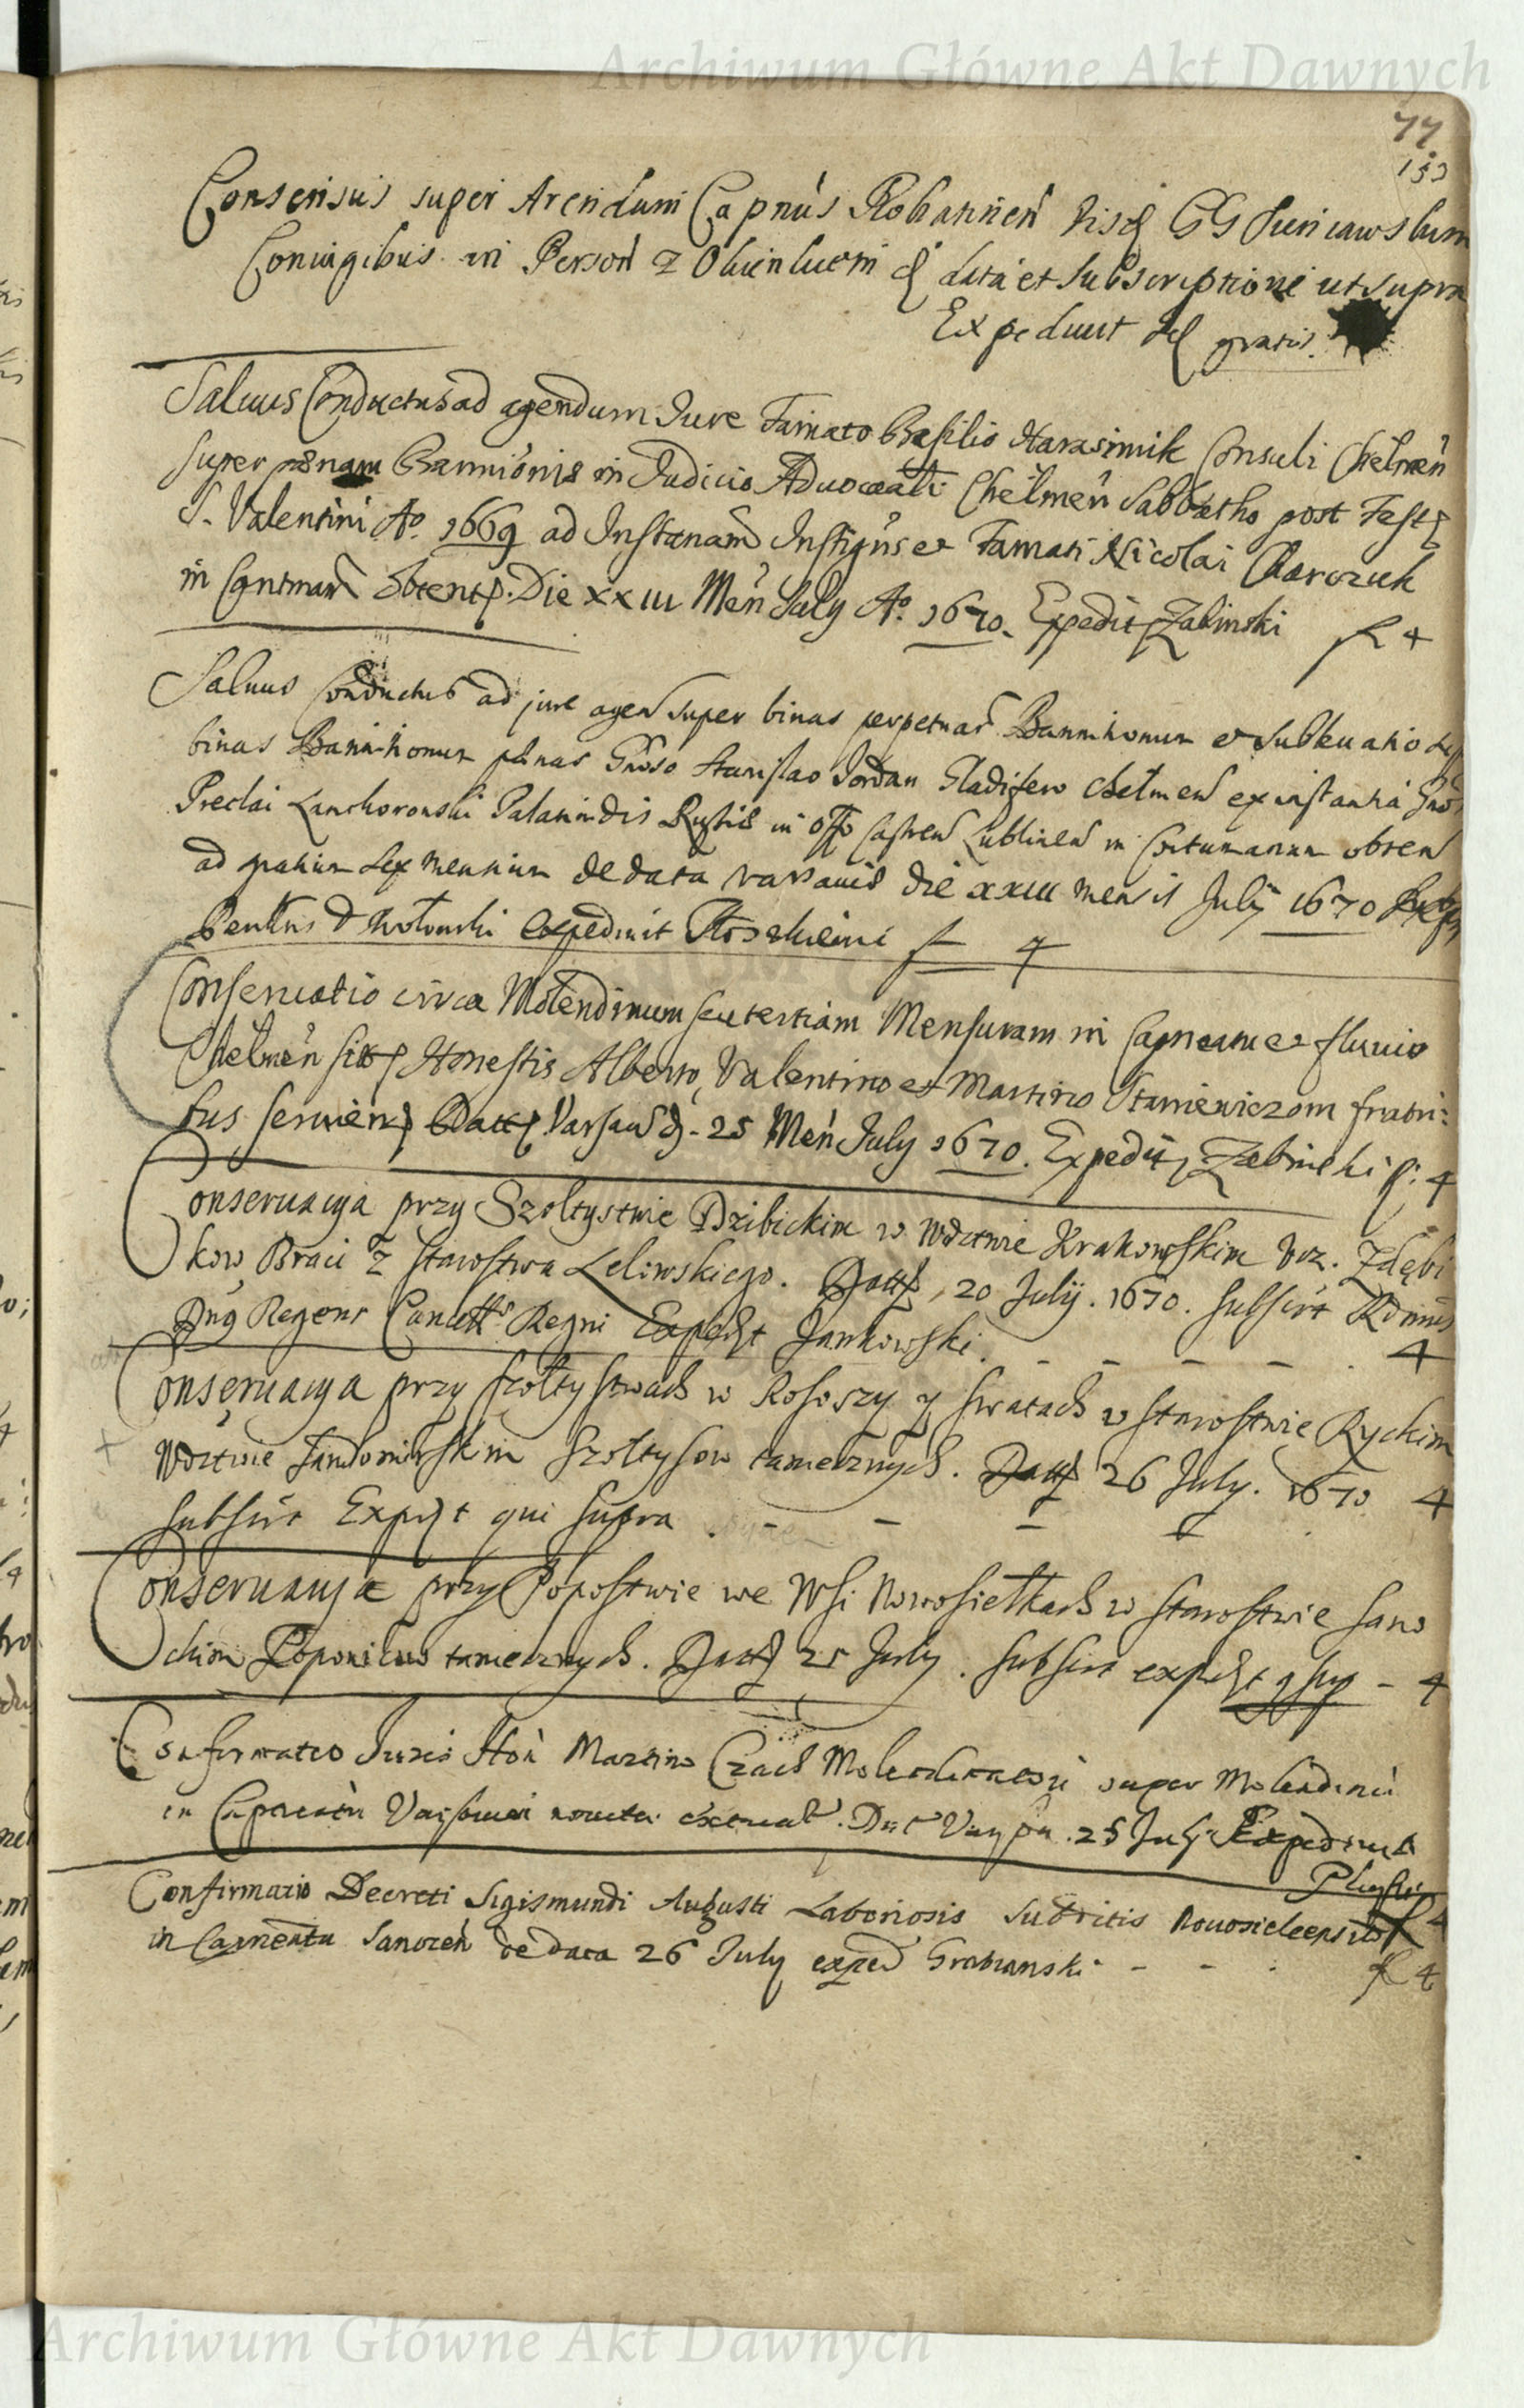 Archiwum Główne Akt Dawnych
77
153
Consensus super Arendam Capnus Rohatinen iisd GG Sieniawskim
Coniugibus in Person z Obuinluem d data et Subscriptione ut supra
Expediuit gratis.
Saluus Conductus ad agendum Jure Famato Basilio Harasimik Consuli Chelmen
super poenam Bannionis in Judicio Aduocati Chelmen Sabbatho post Fest
S. Valentini Ao. 1669 ad Instanam Instigus et Famati Nicolai Charczuk
in Contmam obtent. Die XXIII Men July Ao. 1670. Expedit Zabinski f 4
Saluus Conductus ad jure agen super binas perpetuas Bannitionum et sublevatio
binas Bannitionum penas Gnoso Stanislao Jordan Gladifero Chelmen ex instantia Gnos
Preclai Lanckoronski Palatinidis Russie in offo Castren Lublinen in Contumatiam obten
ad spatium sex mensium de data Varsavie die XXIII mensis July 1670
expediuit f 4
Conseruatio circa Molendinum seu tertiam Mensuram in Capneatu et fluuio
Chelmen sit Honestis Alberto, Valentino et Martino Staniewiczom fratri:
bus seruien Datt Varsau d. 25 Men July 1670. Expedit Zabinski f: 4
Conseruacya przy Szołtystwie Dzibickim w Wdztwie Krakowskim Ur. Zdębi
kow Braci z Starostwa Lelowskiego. Datt, 20 July. 1670. subscrit Rdmus
Dns Regens Cancell Regni Exped Jankowski. - - - - 4
Conseruacya przy szołtystwach w Rososzy y Swatach w Starostwie Ryckim
Wdztwie Sandomirskim Szołtysow tamecznych. Datt 26 July. 1670 4
subscrit Exped qui supra . - - -
Conseruacya przy Popostwie we Wsi Nowosiełkach w Starostwie Sano
ckim Popowiczow tamecznych. Datt 25 July. subscrit exped q sup - 4
Confirmatio Juris Hon Martino Czach Molendinatori super Molendinu
in Capneatu Varsauien nouiter extruct. Dat Varsau. 25 July Expediuit
f 4
Confirmatio Decreti Sigismundi Augusti Laboriosis Subditis Nouosielcensibus
in Capneatu Sanocen de data 26 July exped Grabianski - - . f 4
Archiwum Główne Akt Dawnych